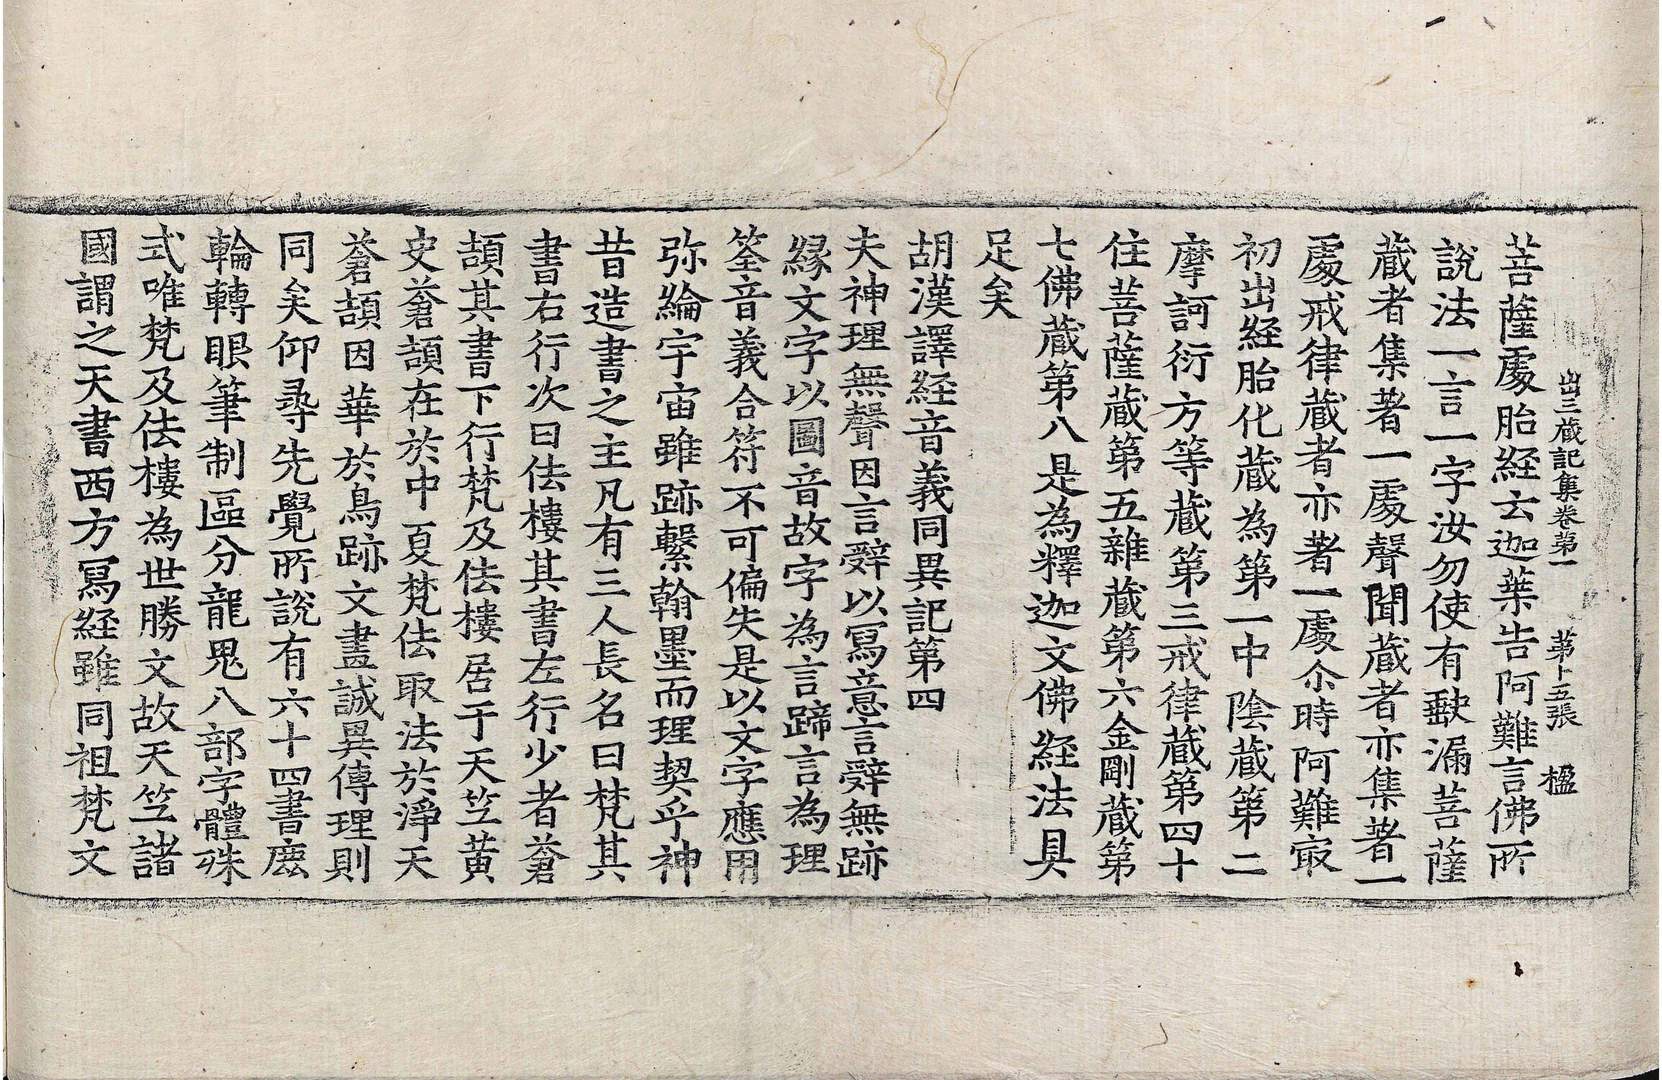 出三蔵記集卷第一 苐十五張 楹
菩薩處胎經云迦葉告阿難言佛所
說法一言一字汝勿使有𡙇漏菩薩
蔵者集著一處聲聞蔵者亦集著一
處戒律蔵者亦著一處尒時阿難㝡
初出経胎化蔵為第一中陰蔵第二
摩訶衍方等蔵第三戒律蔵第四十
住菩薩蔵第五雜蔵第六金剛蔵第
七佛蔵第八是為釋迦文佛経法具
足矣
胡漢譯経音義同異記第四
夫神理無聲因言辝以寫意言辝無跡
縁文字以圖音故字為言蹄言為理
筌音義合符不可偏失是以文字應用
弥綸宇宙雖跡繫翰墨而理契乎神
昔造書之主凡有三人長名曰梵其
書右行次曰佉樓其書左行少者蒼
頡其書下行梵及佉樓居于天竺黄
史蒼頡在於中夏梵佉取法於淨天
蒼頡因華於鳥跡文畫誠異傳理則
同矣仰尋先覺所說有六十四書鹿
輪轉眼筆制區分龍鬼八部字體殊
式唯梵及佉樓為世勝文故天竺諸
國謂之天書西方寫経雖同祖梵文